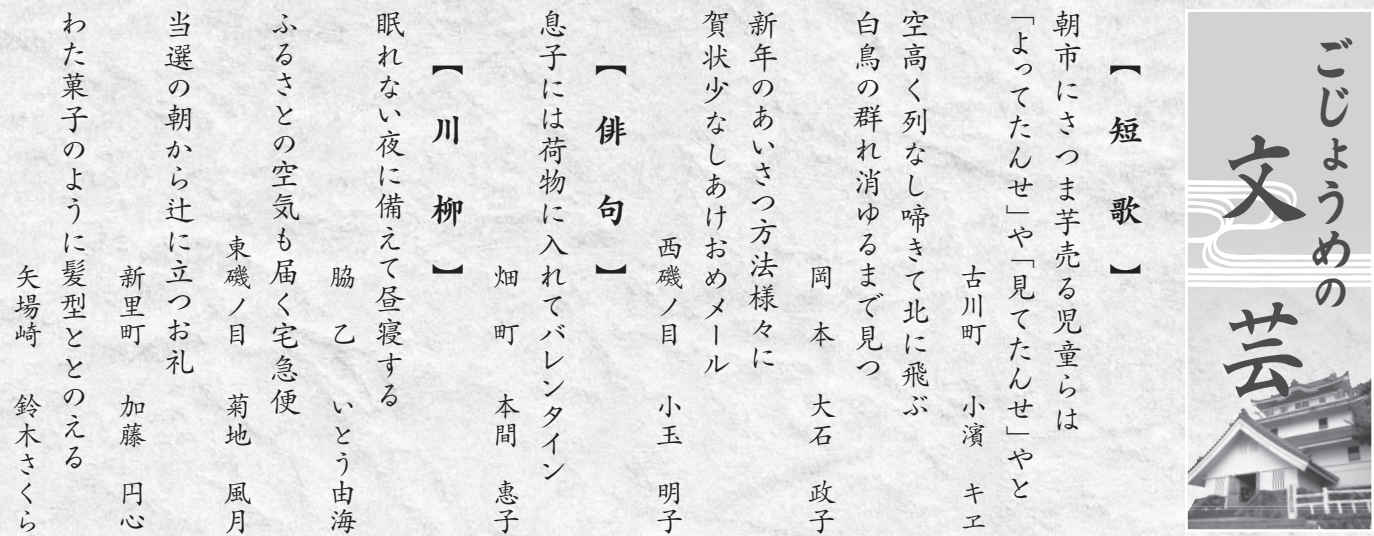 ごじょうめの
文芸
【短歌】
朝市にさつま芋売る児童らは
「よってたんせ」や「見てたんせ」やと
古川町 小濱 キヱ
空高く列なし啼きて北に飛ぶ
白鳥の群れ消ゆるまで見つ
岡本 大石 政子
新年のあいさつ方法様々に
賀状少なしあけおめメール
西磯ノ目 小玉 明子
【俳句】
息子には荷物に入れてバレンタイン
畑町 本間 惠子
【川柳】
眠れない夜に備えて昼寝する
脇乙 いとう由海
ふるさとの空気も届く宅急便
東磯ノ目 菊地 風月
当選の朝から辻に立つお礼
新里町 加藤 円心
わた菓子のように髪型ととのえる
矢場崎 鈴木さくら